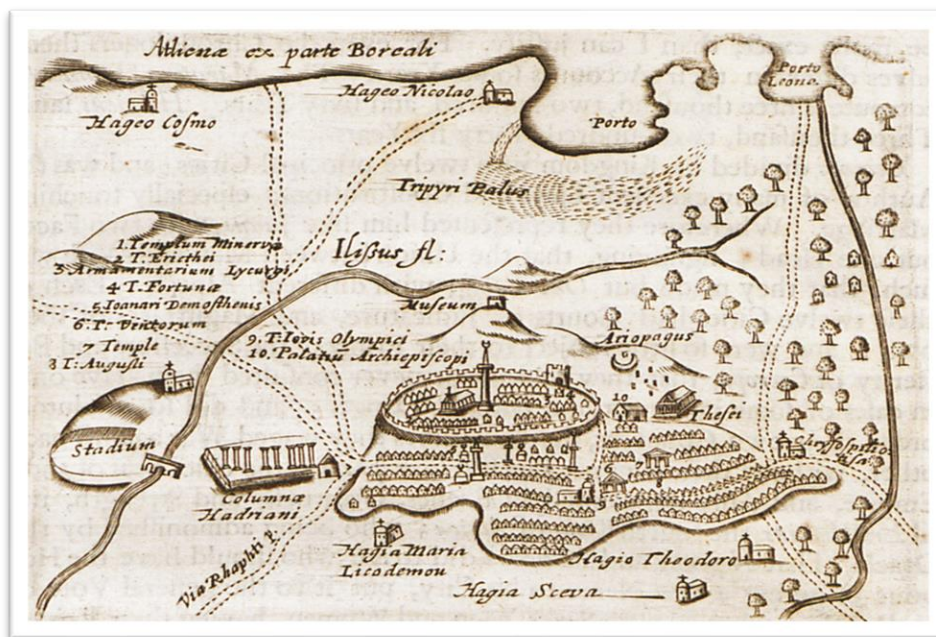 Athenæ ex parte Boreali
Porto
Leone
Hageo Nicolao
Hageo Cosmo
Porto
Tripyri Palus
1. Templum Minervæ
2. T. Ericthei
3. Armamentarium Lycurgi
4 T. Fortunæ
5. Loanari Demosthenis
6 T. Victorum
7 Temple
8 T. Augusti
Ilissus fl:
Museum
9. T. Iovis Olympici
10. Palatiū Archiepiscopi
Ariopagus
10
Thesei
Stadium
6
7
Columnæ
Hadriani
Via Rhaphti
Hagia Maria
Licodemou
Hagio Theodoro
Hagia Sceva